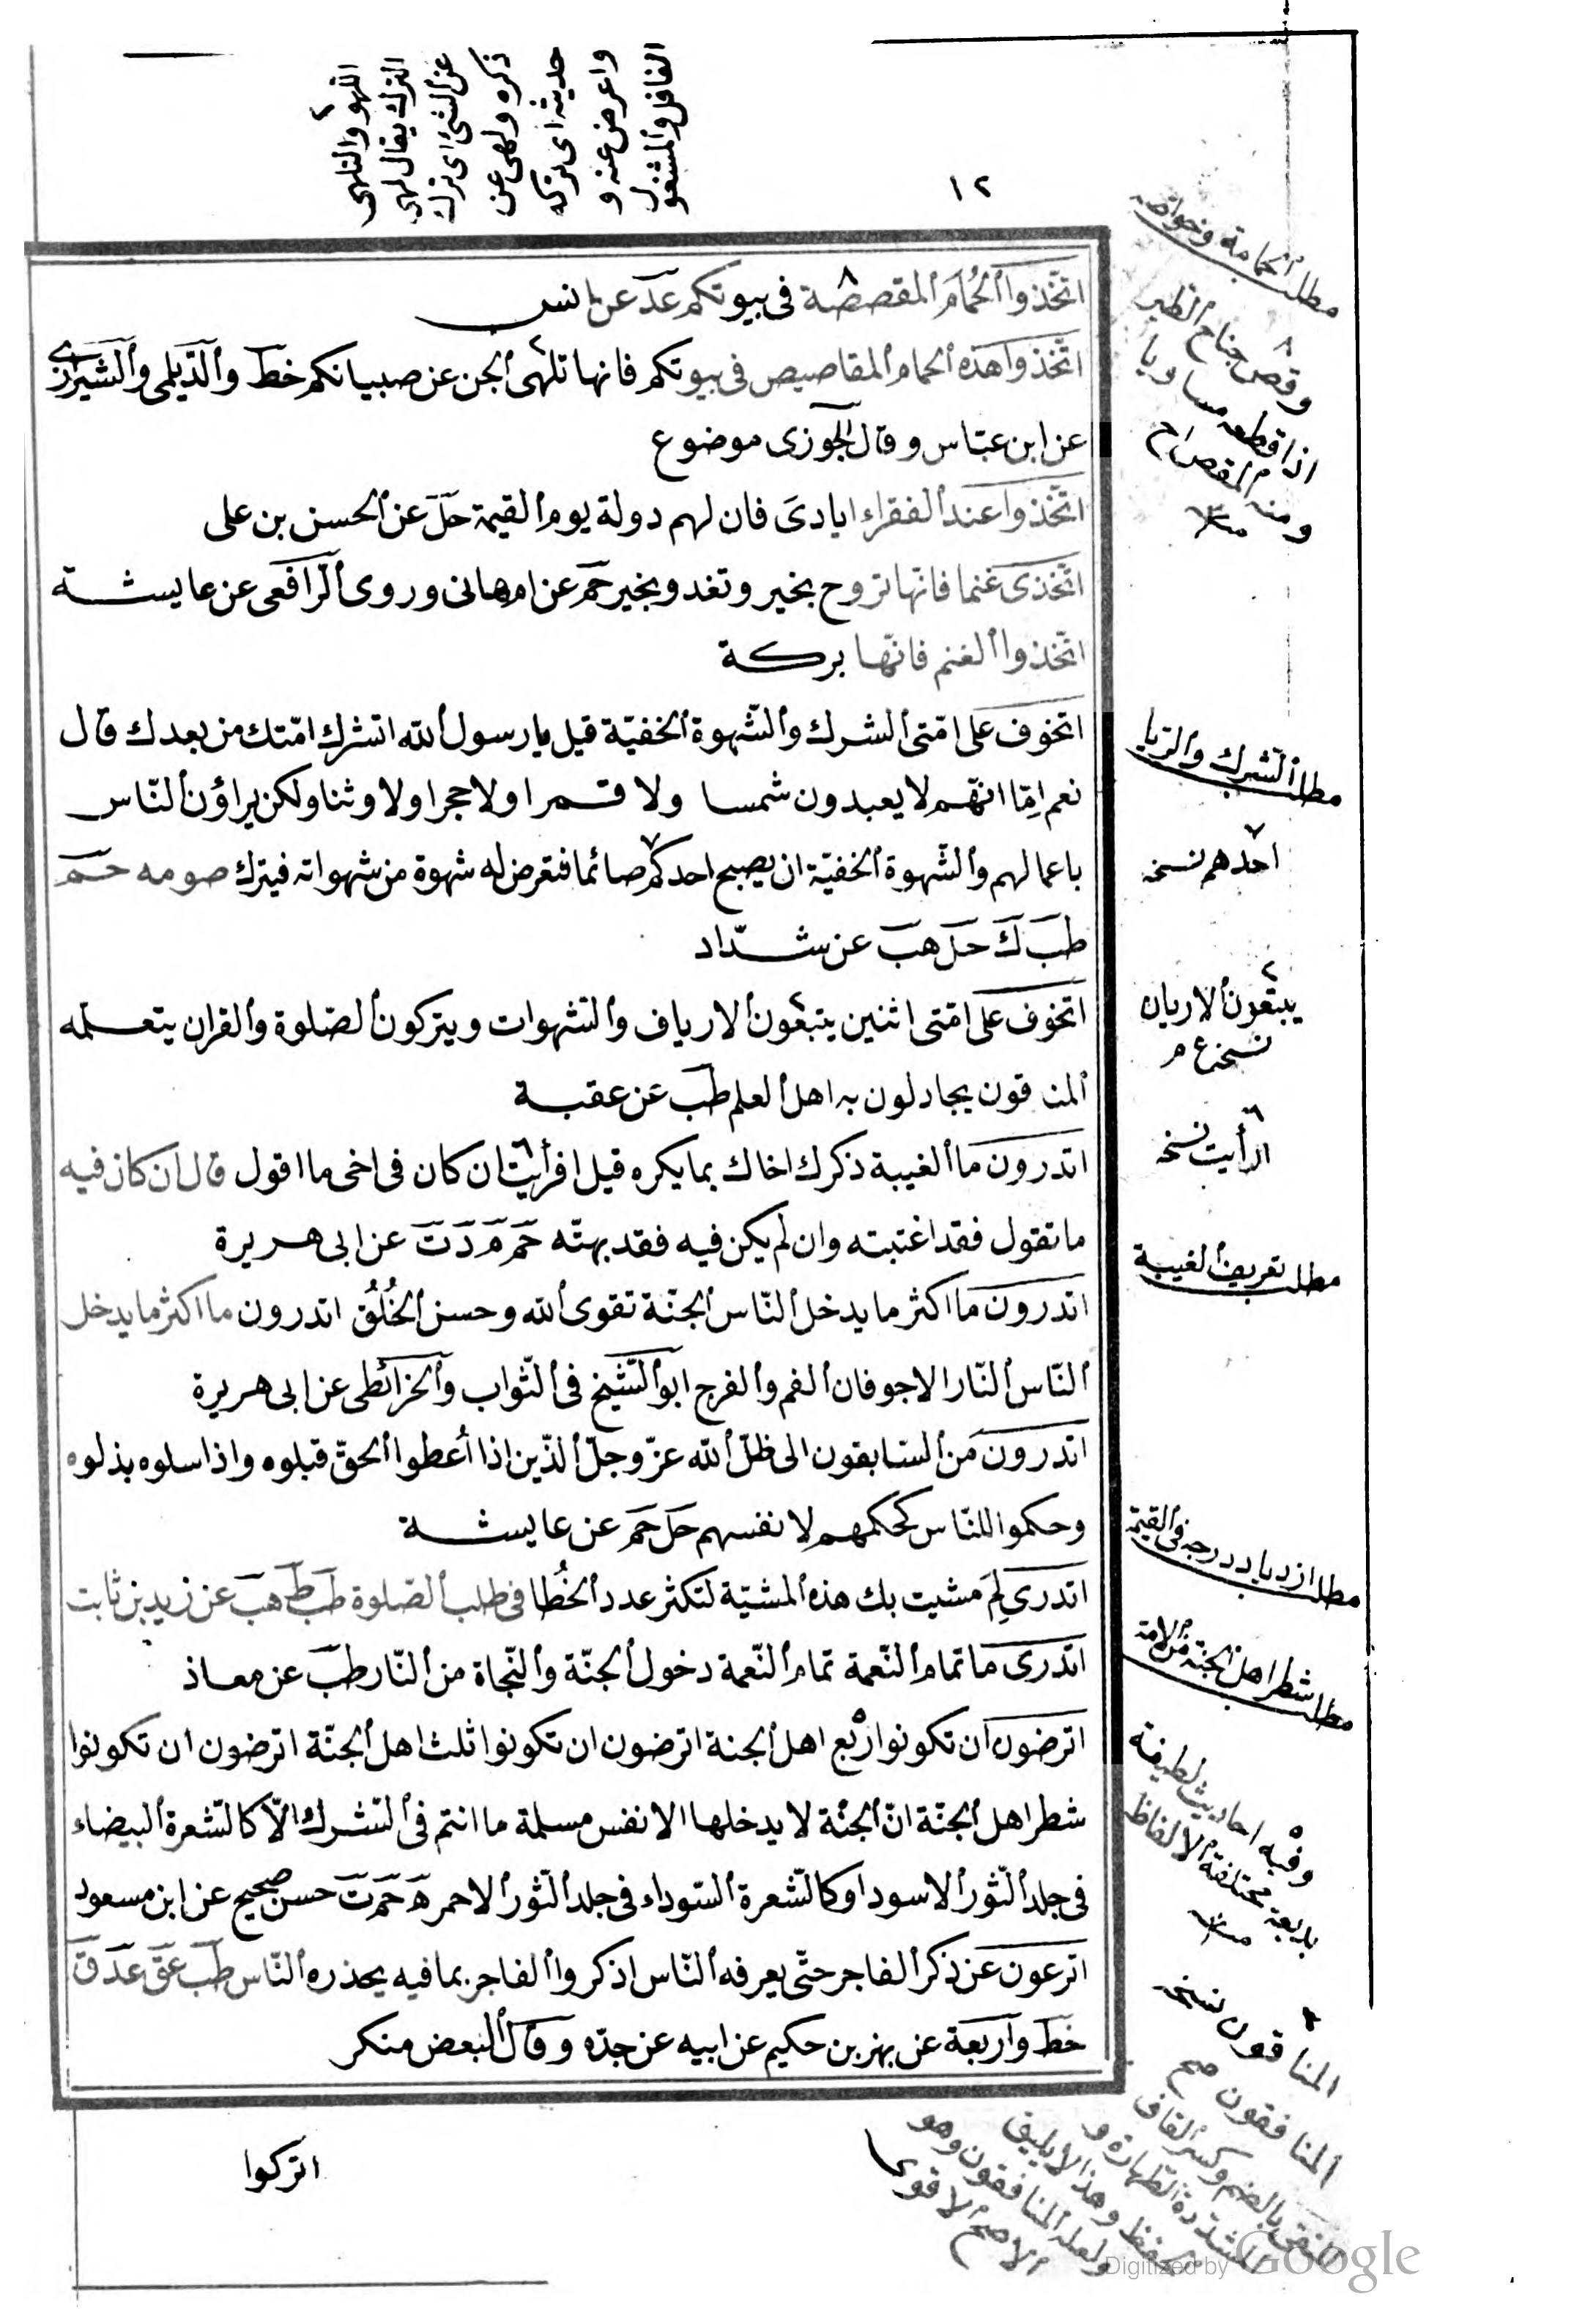 ١٢
اللهو والتلهى
الترك يقال لهى
عن الشئ اى ترك
ذكره ولهى عن
حديثه اى تركه
واعرض عنه و
الغافل والمشغول
اتّخذوا الحمام المقصصة فى بيوتكم عد عن انس
اتّخذوا هذه الحمام المقاصيص فى بيوتكم فانها تلهى الجن عن صبيانكم خط والدّيلمى والشيرازى
عن ابن عبّاس وقال الجوزى موضوع
اتّخذوا عند الفقراء ايادى فان لهم دولة يوم القيمة حل عن الحسن بن على
اتّخذى غنما فانّها تروح بخير وتغدو بخير حم عن ام هانى وروى الرّافعى عن عايشة
اتّخذوا الغنم فانّها بركة
اتخوف على امّتى الشرك والشّهوة الخفيّة قيل يا رسول الله اتشرك امّتك من بعدك قال
نعم امّا انّهم لا يعبدون شمسا ولا قمرا ولا حجرا ولا وثنا ولكن يراؤن النّاس
باعمالهم والشّهوة الخفيّة ان يصبح احدكم صائما فتعرض له شهوة من شهواته فيترك صومه حم
طب ك حل هب عن شدّاد
اتخوف على امّتى اثنين يتبعون الارياف والشهوات ويتركون الصّلوة والقران يتعلمه
المنا قون يجادلون به اهل العلم طب عن عقبة
اتدرون ما الغيبة ذكرك اخاك بما يكره قيل افرأيت ان كان فى اخى ما اقول قال ان كان فيه
ما تقول فقد اغتبته وان لم يكن فيه فقد بهتّه حم م د ت عن ابى هريرة
اتدرون ما اكثر ما يدخل النّاس الجنّة تقوى الله وحسن الخُلُق اتدرون ما اكثر ما يدخل
النّاس النّار الاجوفان الفم والفرج ابو الشّيخ فى الثّواب والخرائطى عن ابى هريرة
اتدرون من السّابقون الى ظلّ الله عزّ وجلّ الّذين اذا أُعطوا الحقّ قبلوه واذا سلوه بذلوه
وحكموا للنّاس كحكمهم لانفسهم حل حم عن عايشة
اتدرى لِمَ مشيت بك هذه المشيّة لتكثر عدد الخُطا فى طلب الصّلوة طب ط هب عن زيد بن ثابت
اتدرى ما تمام النّعمة تمام النّعمة دخول الجنّة والنّجاة من النّار طب عن معاذ
اترضون ان تكونوا ربع اهل الجنة اترضون ان تكونوا ثلث اهل الجنّة اترضون ان تكونوا
شطر اهل الجنّة انّ الجنّة لا يدخلها الا نفس مسلمة ما انتم فى الشّرك الّا كالشّعرة البيضاء
فى جلد الثّور الاسود او كالشّعرة السّوداء فى جلد الثّور الاحمر ه حم ت حسن صحيح عن ابن مسعود
اترعون عن ذكر الفاجر حتّى يعرفه النّاس اذكروا الفاجر بما فيه يحذره النّاس طب عق عد ق
خط واربعة عن بهز بن حكيم عن ابيه عن جدّه وقال البعض منكر
اتركوا
مطلب الحمامة وخواصه
وقص جناح الطير
اذا قطعه مساويا
ومنه المقصراح
مطلب الشرك والريا
احدهم نسخه
يبتغون الاريان
نسخه ع م
ارأيت نسخه
مطلب تعريف الغيبة
مطلب ازدياد درجه فى القيمة
مطلب شطر اهل الجنة من الامة
وفيه احاديث لطيفة
بديعة مختلفة الالفاظ
المنا قون نسخه
المنا فقون صح
بالضم وكسر القاف
المشدّدة الطهارة و
وهذا لا يليق
ولعله المنافقون وهو
الاصح الاقوى
Digitized by Google